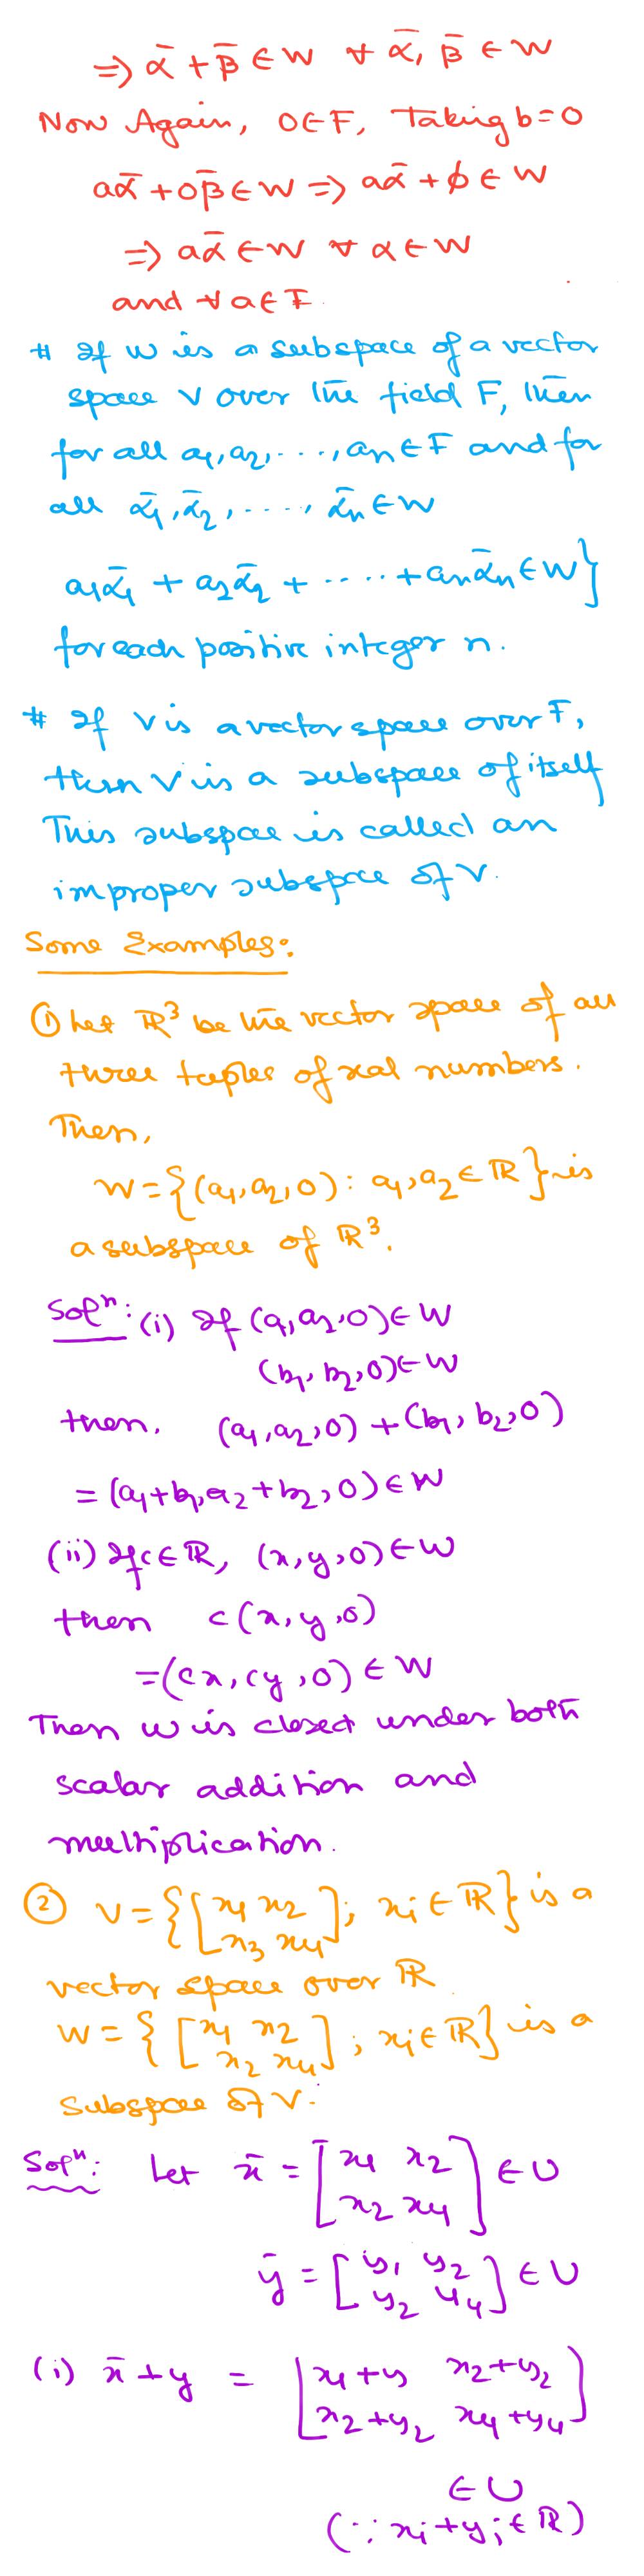 ⇒ ᾱ + β̄ ∈ W ∀ ᾱ, β̄ ∈ W
Now Again, 0∈F, Taking b=0
aᾱ + 0β̄ ∈ W ⇒ aᾱ + ϕ ∈ W
⇒ aᾱ ∈ W ∀ α ∈ W
and ∀ a ∈ F
# If W is a subspace of a vector
space V over the field F, then
for all a₁, a₂, ...., aₙ ∈ F and for
all ᾱ₁, ᾱ₂, ...., ᾱₙ ∈ W
a₁ᾱ₁ + a₂ᾱ₂ + ..... + aₙᾱₙ ∈ W}
for each positive integer n.
# If V is a vector space over F,
then V is a subspace of itself
This subspace is called an
improper subspace of V.
Some Examples:
① Let ℝ³ be the vector space of all
three tuples of real numbers.
Then,
W = {(a₁, a₂, 0) : a₁, a₂ ∈ ℝ} is
a subspace of ℝ³.
Solⁿ: (i) If (a₁, a₂, 0) ∈ W
(b₁, b₂, 0) ∈ W
then, (a₁, a₂, 0) + (b₁, b₂, 0)
= (a₁+b₁, a₂+b₂, 0) ∈ W
(ii) If c ∈ ℝ, (x, y, 0) ∈ W
then c(x, y, 0)
= (cx, cy, 0) ∈ W
Then W is closed under both
scalar addition and
multiplication.
② V = {[x₁ x₂
x₃ x₄]; xᵢ ∈ ℝ} is a
vector space over ℝ
W = {[x₁ x₂
x₂ x₄]; xᵢ ∈ ℝ} is a
subspace of V.
Solⁿ: Let x̄ = [x₁ x₂
x₂ x₄] ∈ U
ȳ = [y₁ y₂
y₂ y₄] ∈ U
(i) x̄ + y = [x₁+y x₂+y₂
x₂+y₂ x₄+y₄]
∈ U
(∵ xᵢ + yᵢ ∈ ℝ)